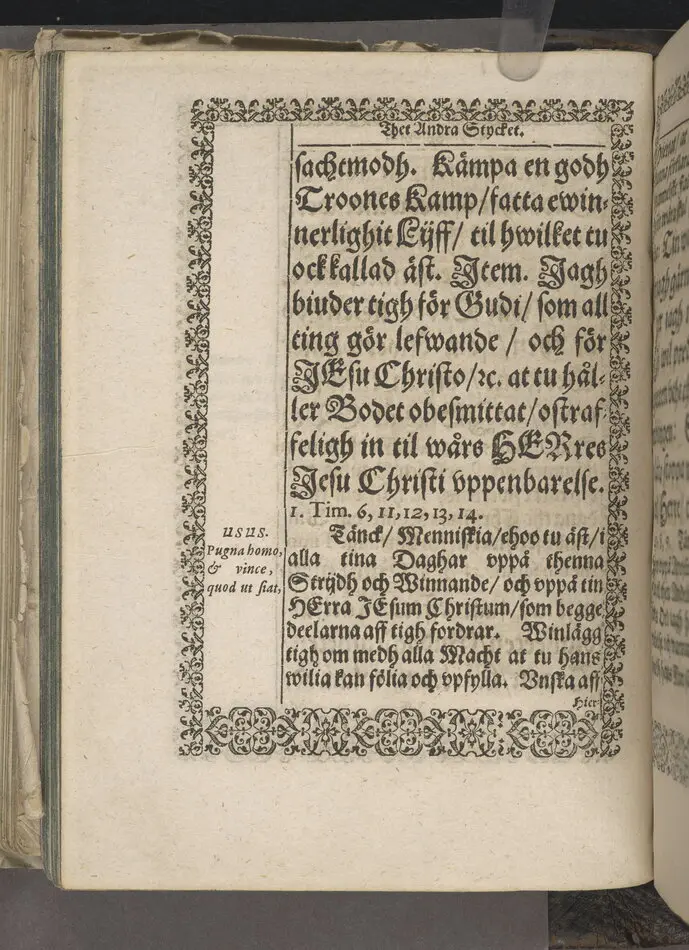 Thet Andra Stycket.
sachtmodh. Kämpa en godh
Troones Kamp/fatta ewin-
nerlighit Lijff/ til hwilket tu
ock kallad äst. Item. Jagh
biuder tigh för Gudi/ som all
ting gör lefwande / och för
JEsu Christo/ꝛc. at tu hål-
ler Bodet obesmittat/ostraf-
feligh in til wårs HERres
Jesu Christi vppenbarelse.
1. Tim. 6, 11,12,13,14.
Tänck/ Menniskia/ehoo tu äst/i
alla tina Daghar vppå thenna
Strijdh och Winnande/ och vppå tin
HErra JEsum Christum/som begge
deelarna aff tigh fordrar. Winlägg
tigh om medh alla Macht at tu hans
wilia kan fölia och vpfylla. Vnska aff
Hier-
usus.
Pugna homo,
& vince,
quod ut fiat,